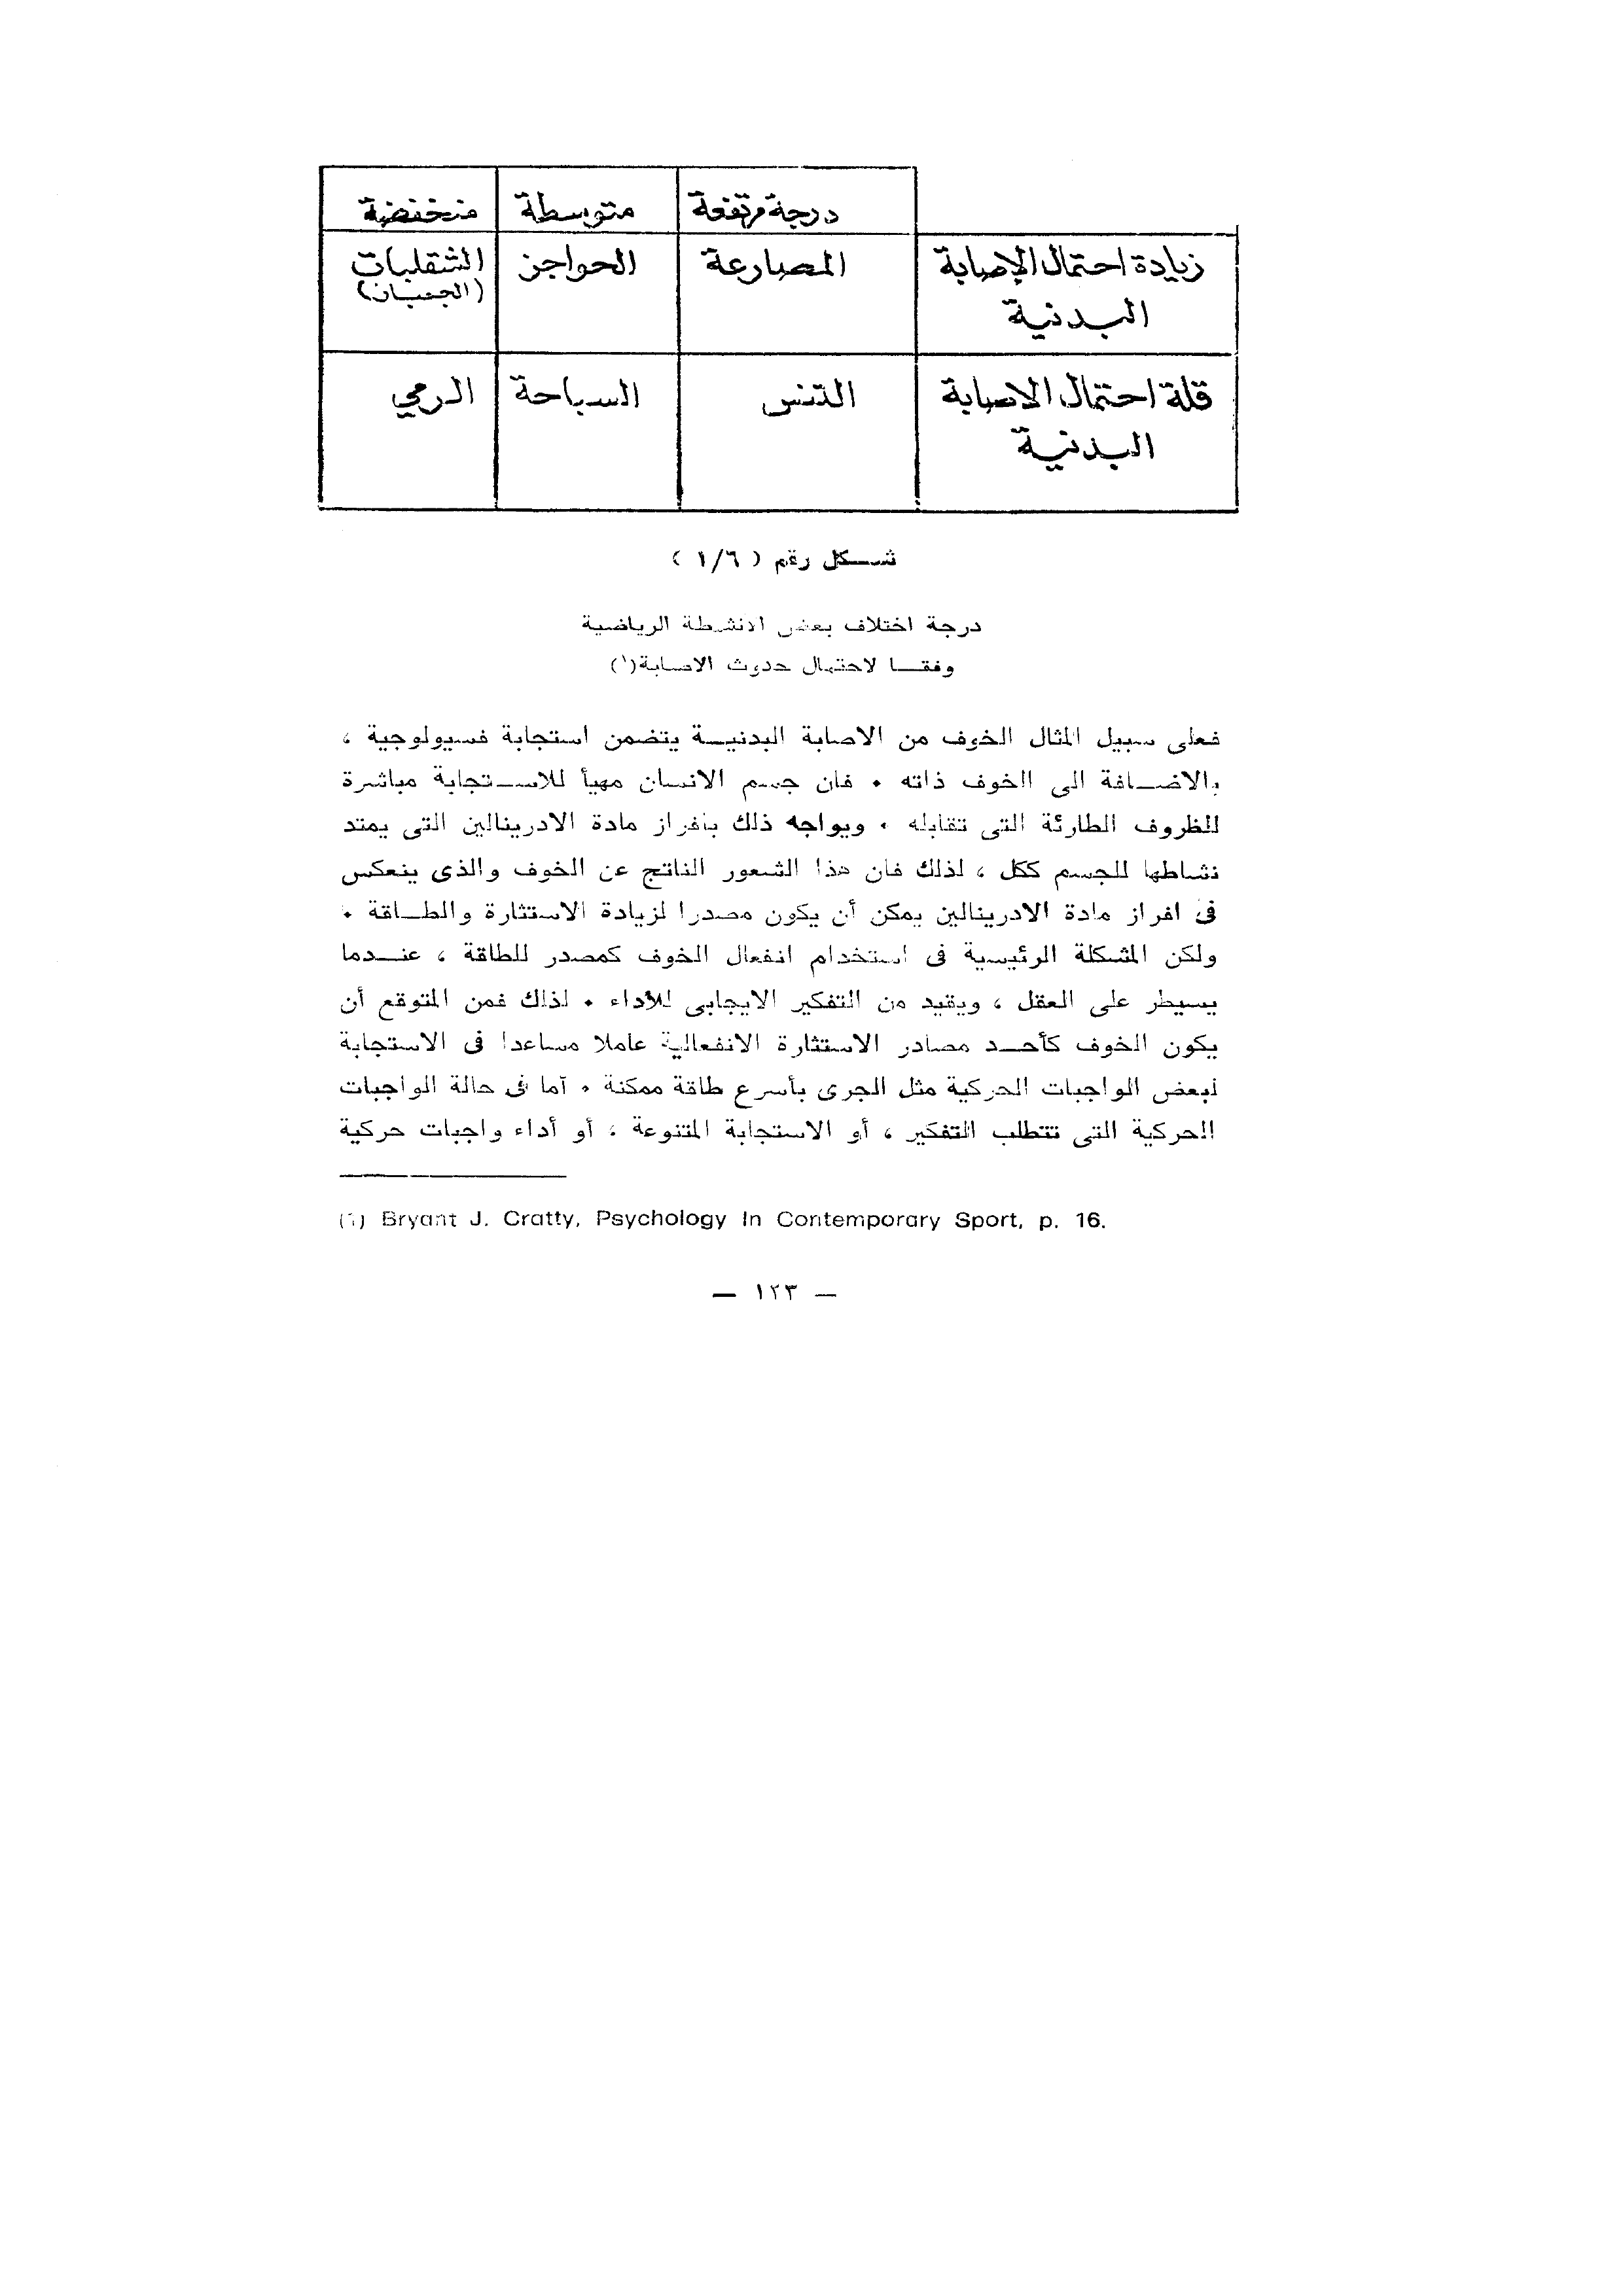 درجة مرتفعة متوسطة منخفضة
زيادة احتمال الإصابة البدنية المصارعة الحواجز الشقلبات (الجمباز)
قلة احتمال الاصابة البدنية التنس السباحة الرمي
شكل رقم ( ١/٦ )
درجة اختلاف بعض الانشطة الرياضية
وفقا لاحتمال حدوث الاصابة(١)
فعلى سبيل المثال الخوف من الاصابة البدنية يتضمن استجابة فسيولوجية ،
بالاضافة الى الخوف ذاته ٠ فان جسم الانسان مهيأ للاستجابة مباشرة
للظروف الطارئة التى تقابله ٠ ويواجه ذلك بافراز مادة الادرينالين التى يمتد
نشاطها للجسم ككل ، لذلك فان هذا الشعور الناتج عن الخوف والذى ينعكس
فى افراز مادة الادرينالين يمكن أن يكون مصدرا لزيادة الاستثارة والطاقة ٠
ولكن المشكلة الرئيسية فى استخدام انفعال الخوف كمصدر للطاقة ، عندما
يسيطر على العقل ، ويقيد من التفكير الايجابى للأداء ٠ لذلك فمن المتوقع أن
يكون الخوف كأحد مصادر الاستثارة الانفعالية عاملا مساعدا فى الاستجابة
لبعض الواجبات الحركية مثل الجرى بأسرع طاقة ممكنة ٠ أما فى حالة الواجبات
الحركية التى تتطلب التفكير ، أو الاستجابة المتنوعة ، أو أداء واجبات حركية
(١) Bryant J. Cratty, Psychology In Contemporary Sport, p. 16.
— ١٢٣ —